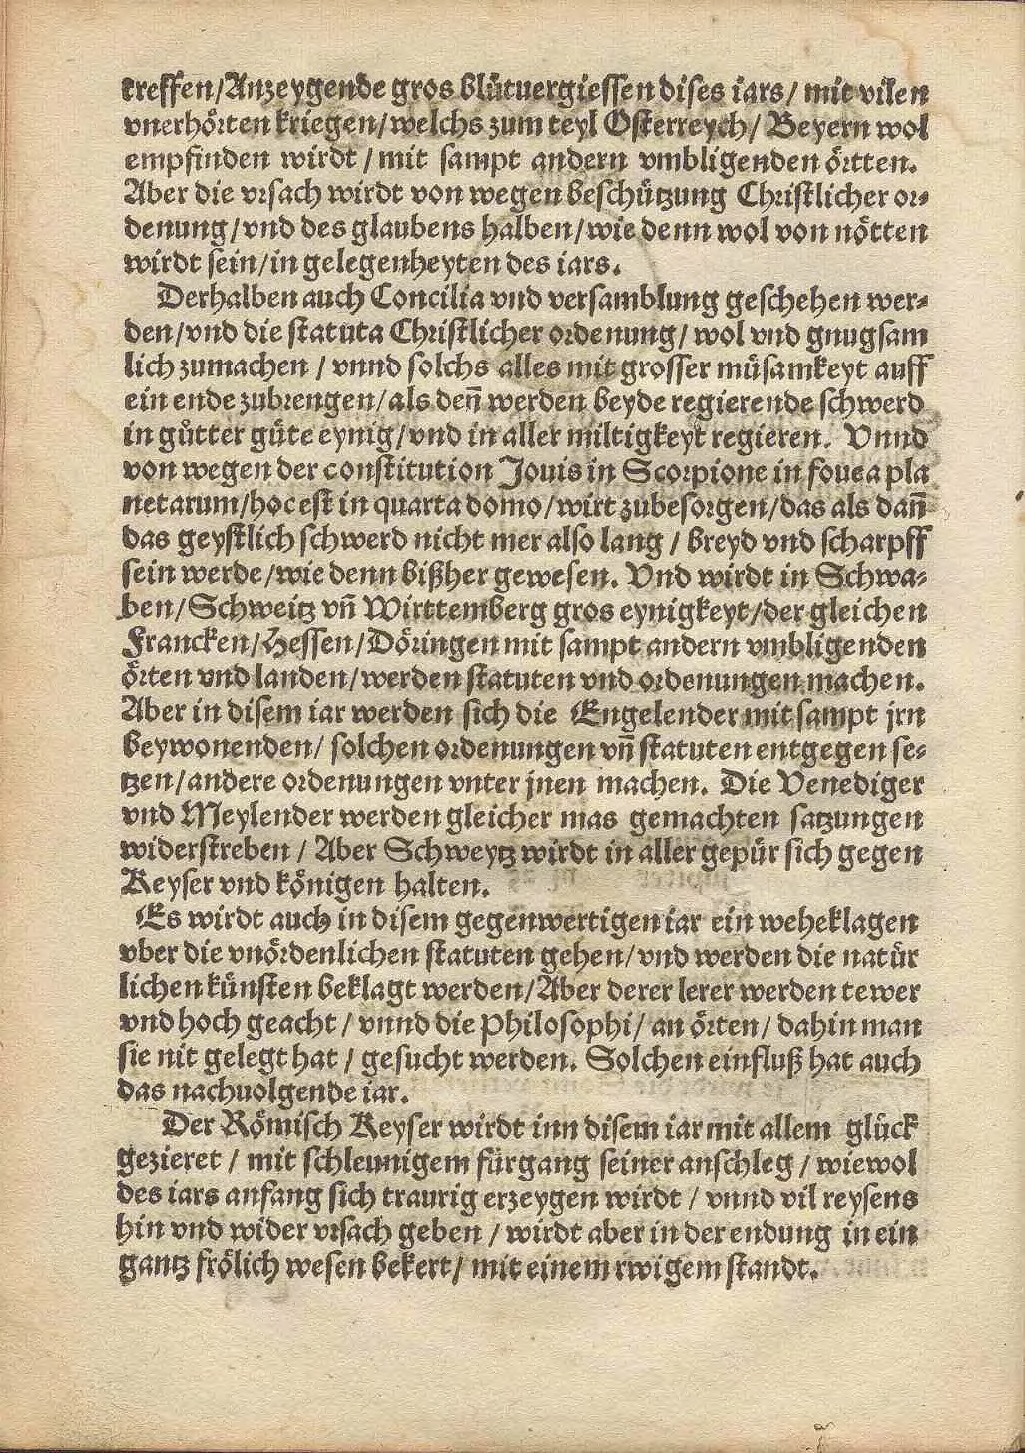 treffen/Anzeygende gros blůtuergiessen dises iars/ mit vilen
vnerhörten kriegen/welchs zum teyl Osterreych/ Beyern wol
empfinden wirdt / mit sampt andern vmbligenden örtten.
Aber die vrsach wirdt von wegen beschützung Christlicher or⸗
denung/vnd des glaubens halben/wie denn wol von nötten
wirdt sein/in gelegenheyten des iars.
Derhalben auch Concilia vnd versamblung geschehen wer⸗
den/vnd die statuta Christlicher ordenung/ wol vnd gnugsam
lich zumachen / vnnd solchs alles mit grosser müsamkeyt auff
ein ende zubrengen/als den̄ werden beyde regierende schwerd
in gůtter güte eynig/vnd in aller miltigkeyt regieren. Vnnd
von wegen der constitution Jouis in Scorpione in fouea pla
netarum/hoc est in quarta domo/wirt zubesorgen/das als dan̄
das geystlich schwerd nicht mer also lang / breyd vnd scharpff
sein werde/wie denn bißher gewesen. Vnd wirdt in Schwa⸗
ben/Schweitz vn̄ Wirttemberg gros eynigkeyt/der gleichen
Francken/Hessen/Döringen mit sampt andern vmbligenden
örten vnd landen/werden statuten vnd ordenungen machen.
Aber in disem iar werden sich die Engelender mit sampt jrn
beywonenden/ solchen ordenungen vn̄ statuten entgegen se⸗
tzen/andere ordenungen vnter jnen machen. Die Venediger
vnd Meylender werden gleicher mas gemachten satzungen
widerstreben / Aber Schweytz wirdt in aller gepür sich gegen
Keyser vnd königen halten.
Es wirdt auch in disem gegenwertigen iar ein weheklagen
vber die vnördenlichen statuten gehen/vnd werden die natür
lichen künsten beklagt werden/Aber derer lerer werden tewer
vnd hoch geacht / vnnd die Philosophi/ an örten/ dahin man
sie nit gelegt hat / gesucht werden. Solchen einfluß hat auch
das nachuolgende iar.
Der Römisch Keyser wirdt inn disem iar mit allem glück
gezieret / mit schleunigem fürgang seiner anschleg / wiewol
des iars anfang sich traurig erzeygen wirdt / vnnd vil reysens
hin vnd wider vrsach geben / wirdt aber in der endung in ein
gantz frölich wesen bekert/ mit einem rwigem standt.